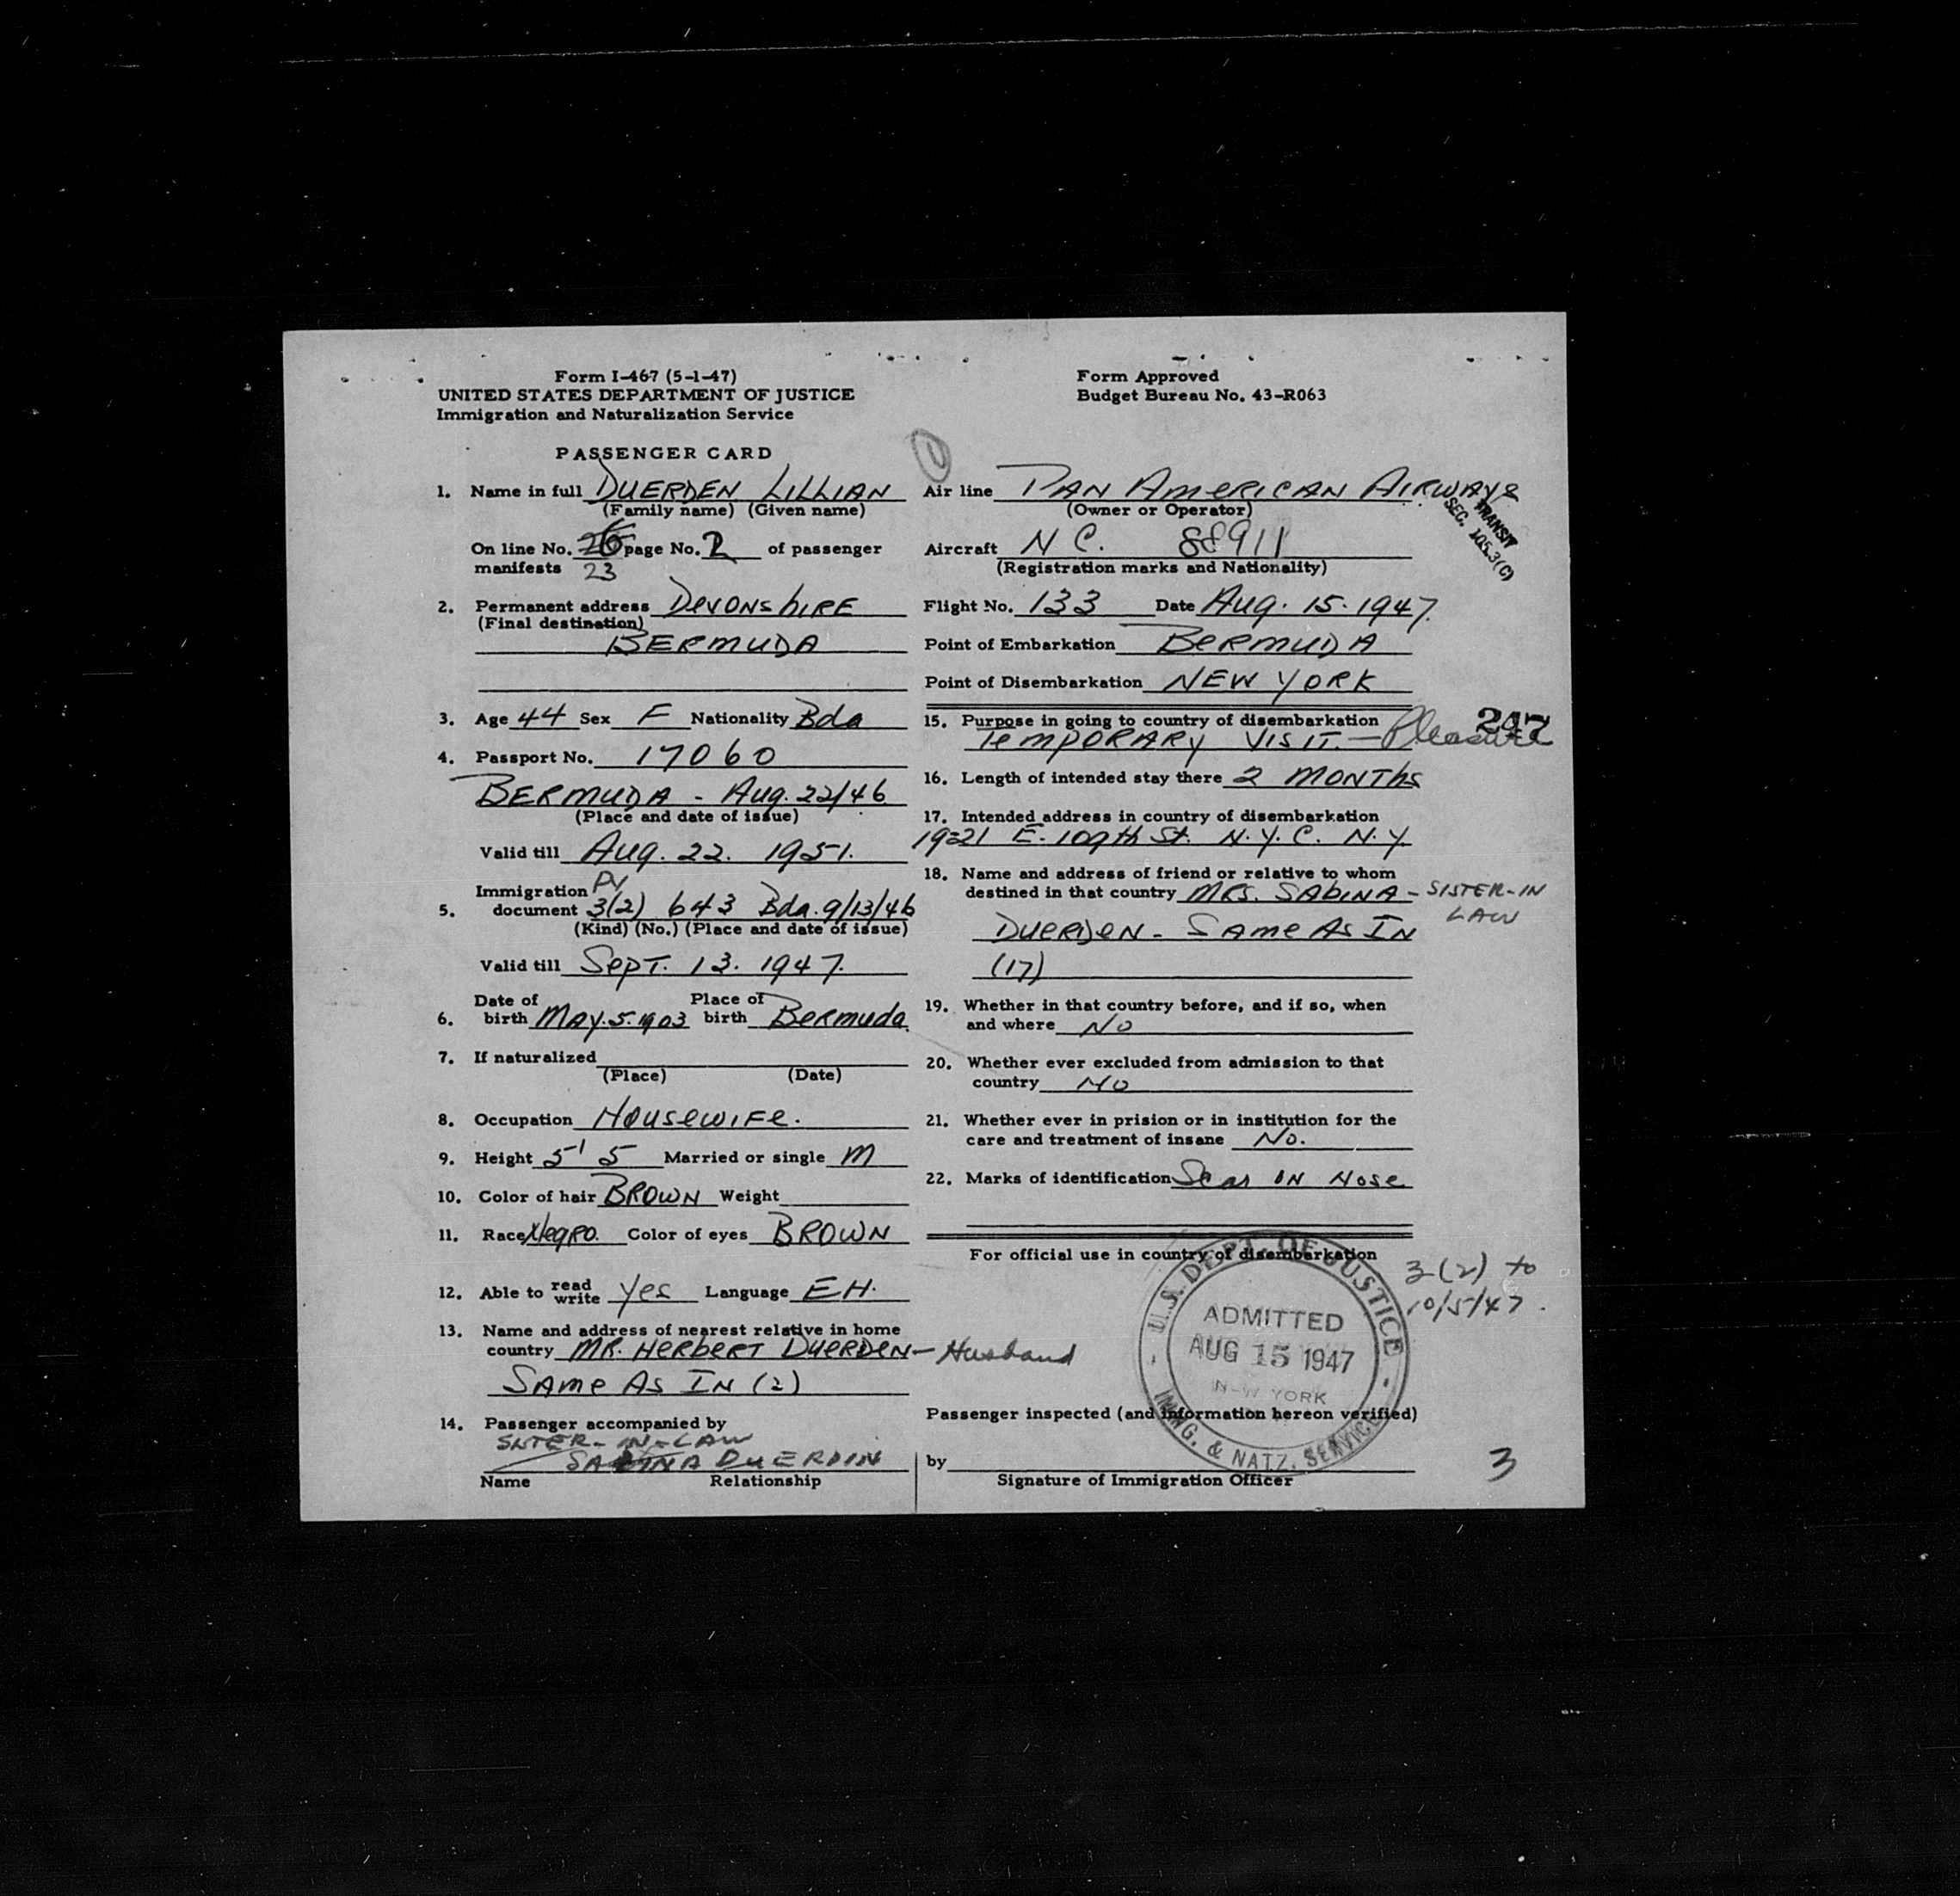 Form I-467 (5-1-47)
UNITED STATES DEPARTMENT OF JUSTICE
Immigration and Naturalization Service
Form Approved
Budget Bureau No. 43-R063
PASSENGER CARD
1. Name in full DUERDEN LILLIAN
(Family name) (Given name)
On line No. 26 page No. 2 of passenger
manifests 23
2. Permanent address DEVONSHIRE
(Final destination)
BERMUDA
3. Age 44 Sex F Nationality Bda
4. Passport No. 17060
BERMUDA - Aug. 22/46
(Place and date of issue)
Valid till Aug. 22. 1951.
PV
5. Immigration document 3(2) 643 Bda. 9/13/46
(Kind) (No.) (Place and date of issue)
Valid till Sept. 13. 1947.
6. Date of birth MAY. 5. 1903 Place of birth Bermuda
7. If naturalized
(Place) (Date)
8. Occupation Housewife.
9. Height 5' 5 Married or single M
10. Color of hair BROWN Weight
11. Race Negro. Color of eyes BROWN
12. Able to read write Yes Language EH.
13. Name and address of nearest relative in home
country MR. HERBERT DUERDEN - Husband
SAME AS IN (2)
14. Passenger accompanied by
SISTER-IN-LAW
SABINA DUERDIN
Name Relationship
1
Air line PAN AMERICAN AIRWAYS
(Owner or Operator)
TRANSIT
SEC. 105.3(C)
Aircraft N C. 88911
(Registration marks and Nationality)
Flight No. 133 Date Aug. 15. 1947.
Point of Embarkation BERMUDA
Point of Disembarkation NEW YORK
15. Purpose in going to country of disembarkation
TEMPORARY VISIT. - Pleasure
247
16. Length of intended stay there 2 MONTHS
17. Intended address in country of disembarkation
E. 109th St. N.Y.C. N.Y.
18. Name and address of friend or relative to whom
destined in that country MRS. SABINA - SISTER-IN
LAW
DUERDEN - SAME AS IN
(17)
19. Whether in that country before, and if so, when
and where No
20. Whether ever excluded from admission to that
country No
21. Whether ever in prision or in institution for the
care and treatment of insane No.
22. Marks of identification Scar ON Nose
For official use in country of disembarkation
3(2) to
10/5/47.
U.S. DEPT. OF JUSTICE
ADMITTED
AUG 15 1947
NEW YORK
IMMG. & NATZ. SERVICE
Passenger inspected (and information hereon verified)
by
Signature of Immigration Officer
3